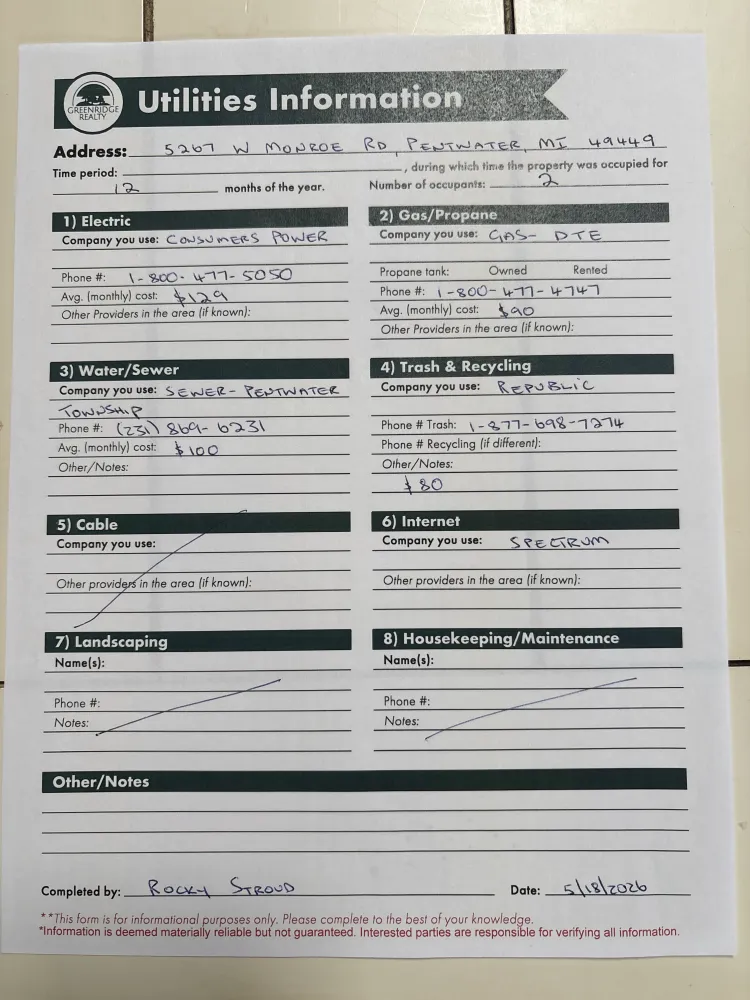 GREENRIDGE
REALTY
Utilities Information
Address: 5267 W MONROE RD, PENTWATER, MI 49449
Time period: , during which time the property was occupied for
12 months of the year. Number of occupants: 2
1) Electric
Company you use: CONSUMERS POWER
Phone #: 1-800-477-5050
Avg. (monthly) cost: $129
Other Providers in the area (if known):
2) Gas/Propane
Company you use: GAS- DTE
Propane tank: Owned Rented
Phone #: 1-800-477-4747
Avg. (monthly) cost: $90
Other Providers in the area (if known):
3) Water/Sewer
Company you use: SEWER- PENTWATER
TOWNSHIP
Phone #: (231) 869-6231
Avg. (monthly) cost: $100
Other/Notes:
4) Trash & Recycling
Company you use: REPUBLIC
Phone # Trash: 1-877-698-7274
Phone # Recycling (if different):
Other/Notes:
$80
5) Cable
Company you use:
Other providers in the area (if known):
6) Internet
Company you use: SPECTRUM
Other providers in the area (if known):
7) Landscaping
Name(s):
Phone #:
Notes:
8) Housekeeping/Maintenance
Name(s):
Phone #:
Notes:
Other/Notes
Completed by: ROCKY STROUD Date: 5/18/2026
**This form is for informational purposes only. Please complete to the best of your knowledge.
*Information is deemed materially reliable but not guaranteed. Interested parties are responsible for verifying all information.